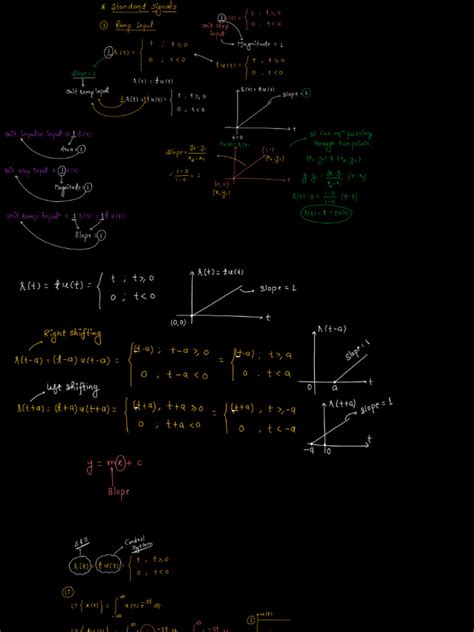 * Standard Signals
③ Ramp Input
r(t) = { t ; t ≥ 0
0 ; t < 0
Unit step input
u(t) = { 1 ; t ≥ 0
0 ; t < 0
Magnitude = 1
Slope = 1
r(t) = t u(t)
t u(t) = { t ; t ≥ 0
0 ; t < 0
Unit ramp input
1 r(t) = t u(t) = { t ; t ≥ 0
0 ; t < 0
r(t) = t u(t)
Slope = 1
t
t=0
Unit impulse input = 1 δ(t)
Area = 1
Unit step input = 1 u(t)
Magnitude = 1
Unit ramp input = 1 r(t) = t u(t)
Slope = 1
Slope = y₂-y₁
x₂-x₁
= 1-0 = 1
1-0
(1,1)
(x₂, y₂)
(0,0)
(x₁, y₁)
t
St line eqⁿ passing
through two points,
(x₁, y₁) & (x₂, y₂)
y-y₁ = y₂-y₁ (x-x₁)
x₂-x₁
r(t)-0 = 1-0 (t-0)
1-0
r(t) = t = t u(t)
r(t) = t u(t) = { t ; t ≥ 0
0 ; t < 0
r(t) = t u(t)
Slope = 1
(0,0)
t
Right shifting
r(t-a) = (t-a) u(t-a) = { (t-a) ; t-a ≥ 0 = { (t-a) ; t ≥ a
0 ; t-a < 0 0 ; t < a
r(t-a)
Slope = 1
0 a t
Left shifting
r(t+a) = (t+a) u(t+a) = { (t+a) ; t+a ≥ 0 = { (t+a) ; t ≥ -a
0 ; t+a < 0 0 ; t < -a
r(t+a)
Slope = 1
-a 0 t
y = mx + c
Slope
S&S
Control System
r(t) = t u(t) = { t ; t ≥ 0
0 ; t < 0
LT
LT{x(t)} = ∫ x(t) e^-st dt
① u(t)